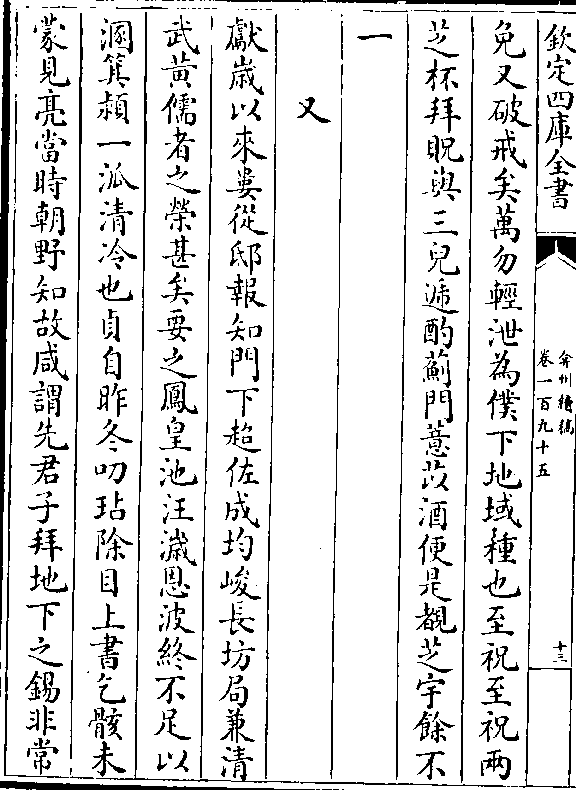 欽定四庫全書
弇州續稿
卷一百九十五
十三
免又破戒矣萬勿輕泄為僕下地域種也至祝至祝兩
芝杯拜貺與三兒遞酌薊門薏苡酒便是覩芝宇餘不
一
又
獻歲以來婁從邸報知門下超佐成均峻長坊局兼清
武黃儒者之榮甚矣要之鳳皇池汪濊恩波終不足以
溷箕潁一泒清冷也貞自昨冬叨玷除目上書乞骸未
蒙見亮當時朝野知故咸謂先君子拜地下之錫非常